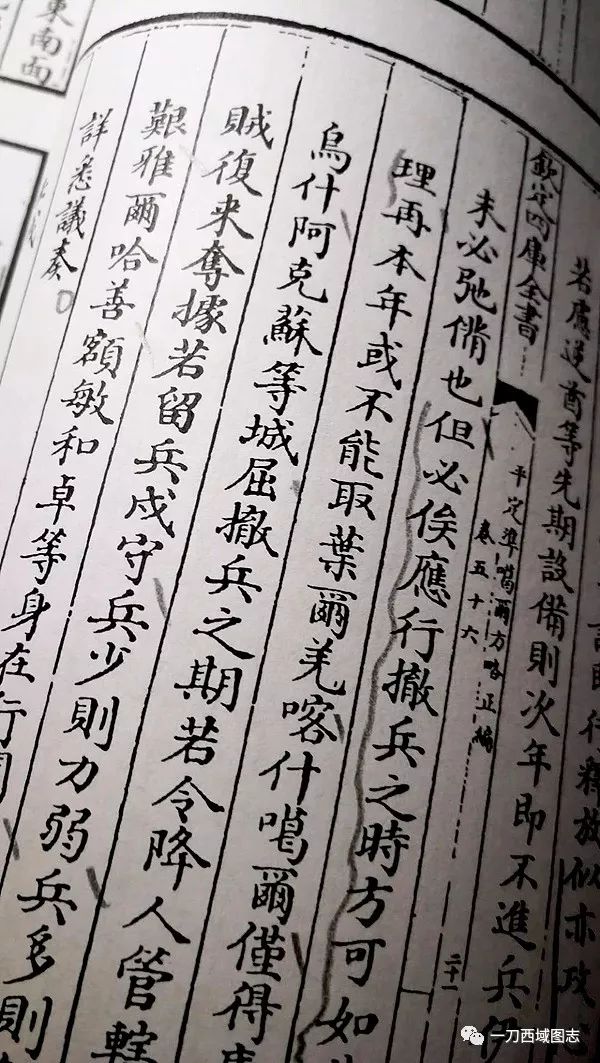 行釋放似亦政
若慮逆酋等先期設備則次年即不進兵
欽定四庫全書
平定準噶爾方略 正編
卷五十六
二十一
未必弛偹也但必俟應行撤兵之時方可如
理再本年或不能取葉爾羌喀什噶爾僅得
烏什阿克蘇等城屈撤兵之期若令降人管轄
賊復来奪據若留兵戍守兵少則力弱兵多則
艱雅爾哈善額敏和卓等身在行間
詳悉議奏
東南面
一刀西域图志